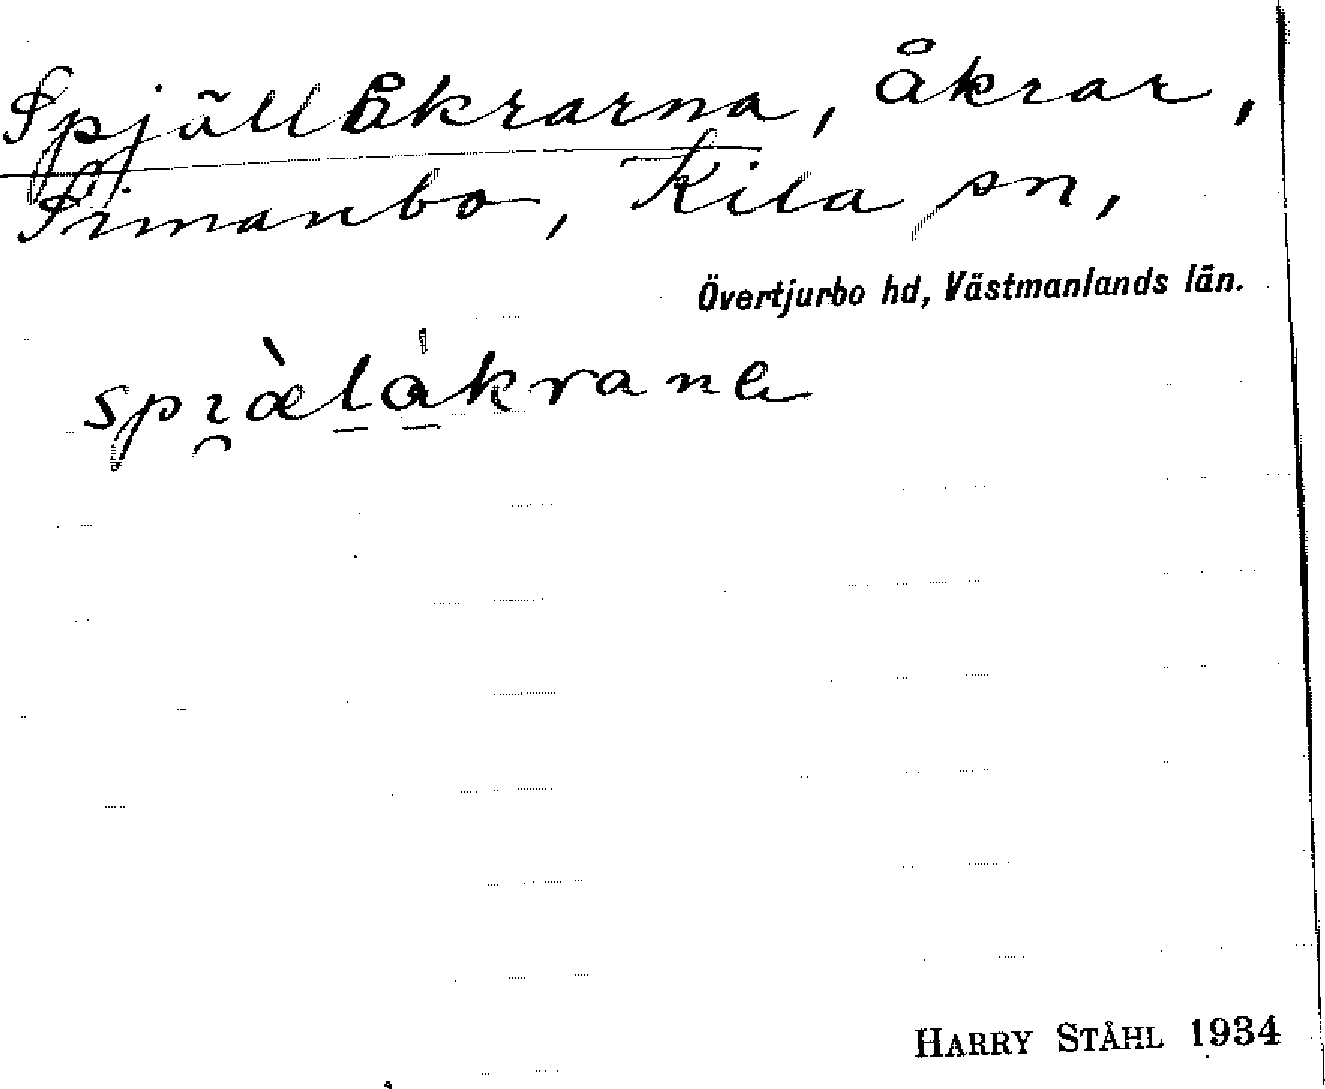 Spjällåkrarna, åkrar,
Simanbo, Kila sn,
Övertjurbo hd, Västmanlands län.
HARRY STÅHL 1934